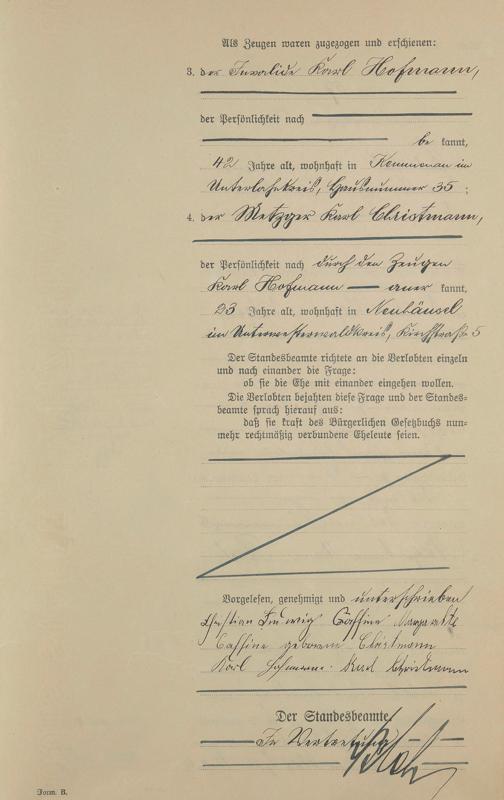 Als Zeugen waren zugezogen und erschienen:
3. der Invalide Karl Hofmann,
der Persönlichkeit nach
be kannt,
42 Jahre alt, wohnhaft in Kemmenau im
Unterlahnkreis, Hausnummer 35;
4. der Metzger Karl Christmann,
der Persönlichkeit nach durch den Zeugen
Karl Hofmann — aner kannt,
23 Jahre alt, wohnhaft in Neuhäusel
im Unterwesterwaldkreis, Kirchstraße 5
Der Standesbeamte richtete an die Verlobten einzeln
und nach einander die Frage:
ob sie die Ehe mit einander eingehen wollen.
Die Verlobten bejahten diese Frage und der Standes-
beamte sprach hierauf aus:
daß sie kraft des Bürgerlichen Gesetzbuchs nun-
mehr rechtmäßig verbundene Eheleute seien.
Vorgelesen, genehmigt und unterschrieben
Christian Ludwig Gaffine Margarethe
Gaffine geborene Christmann
Karl Hofmann. Karl Christmann
Der Standesbeamte.
In Vertretung
Form. B.